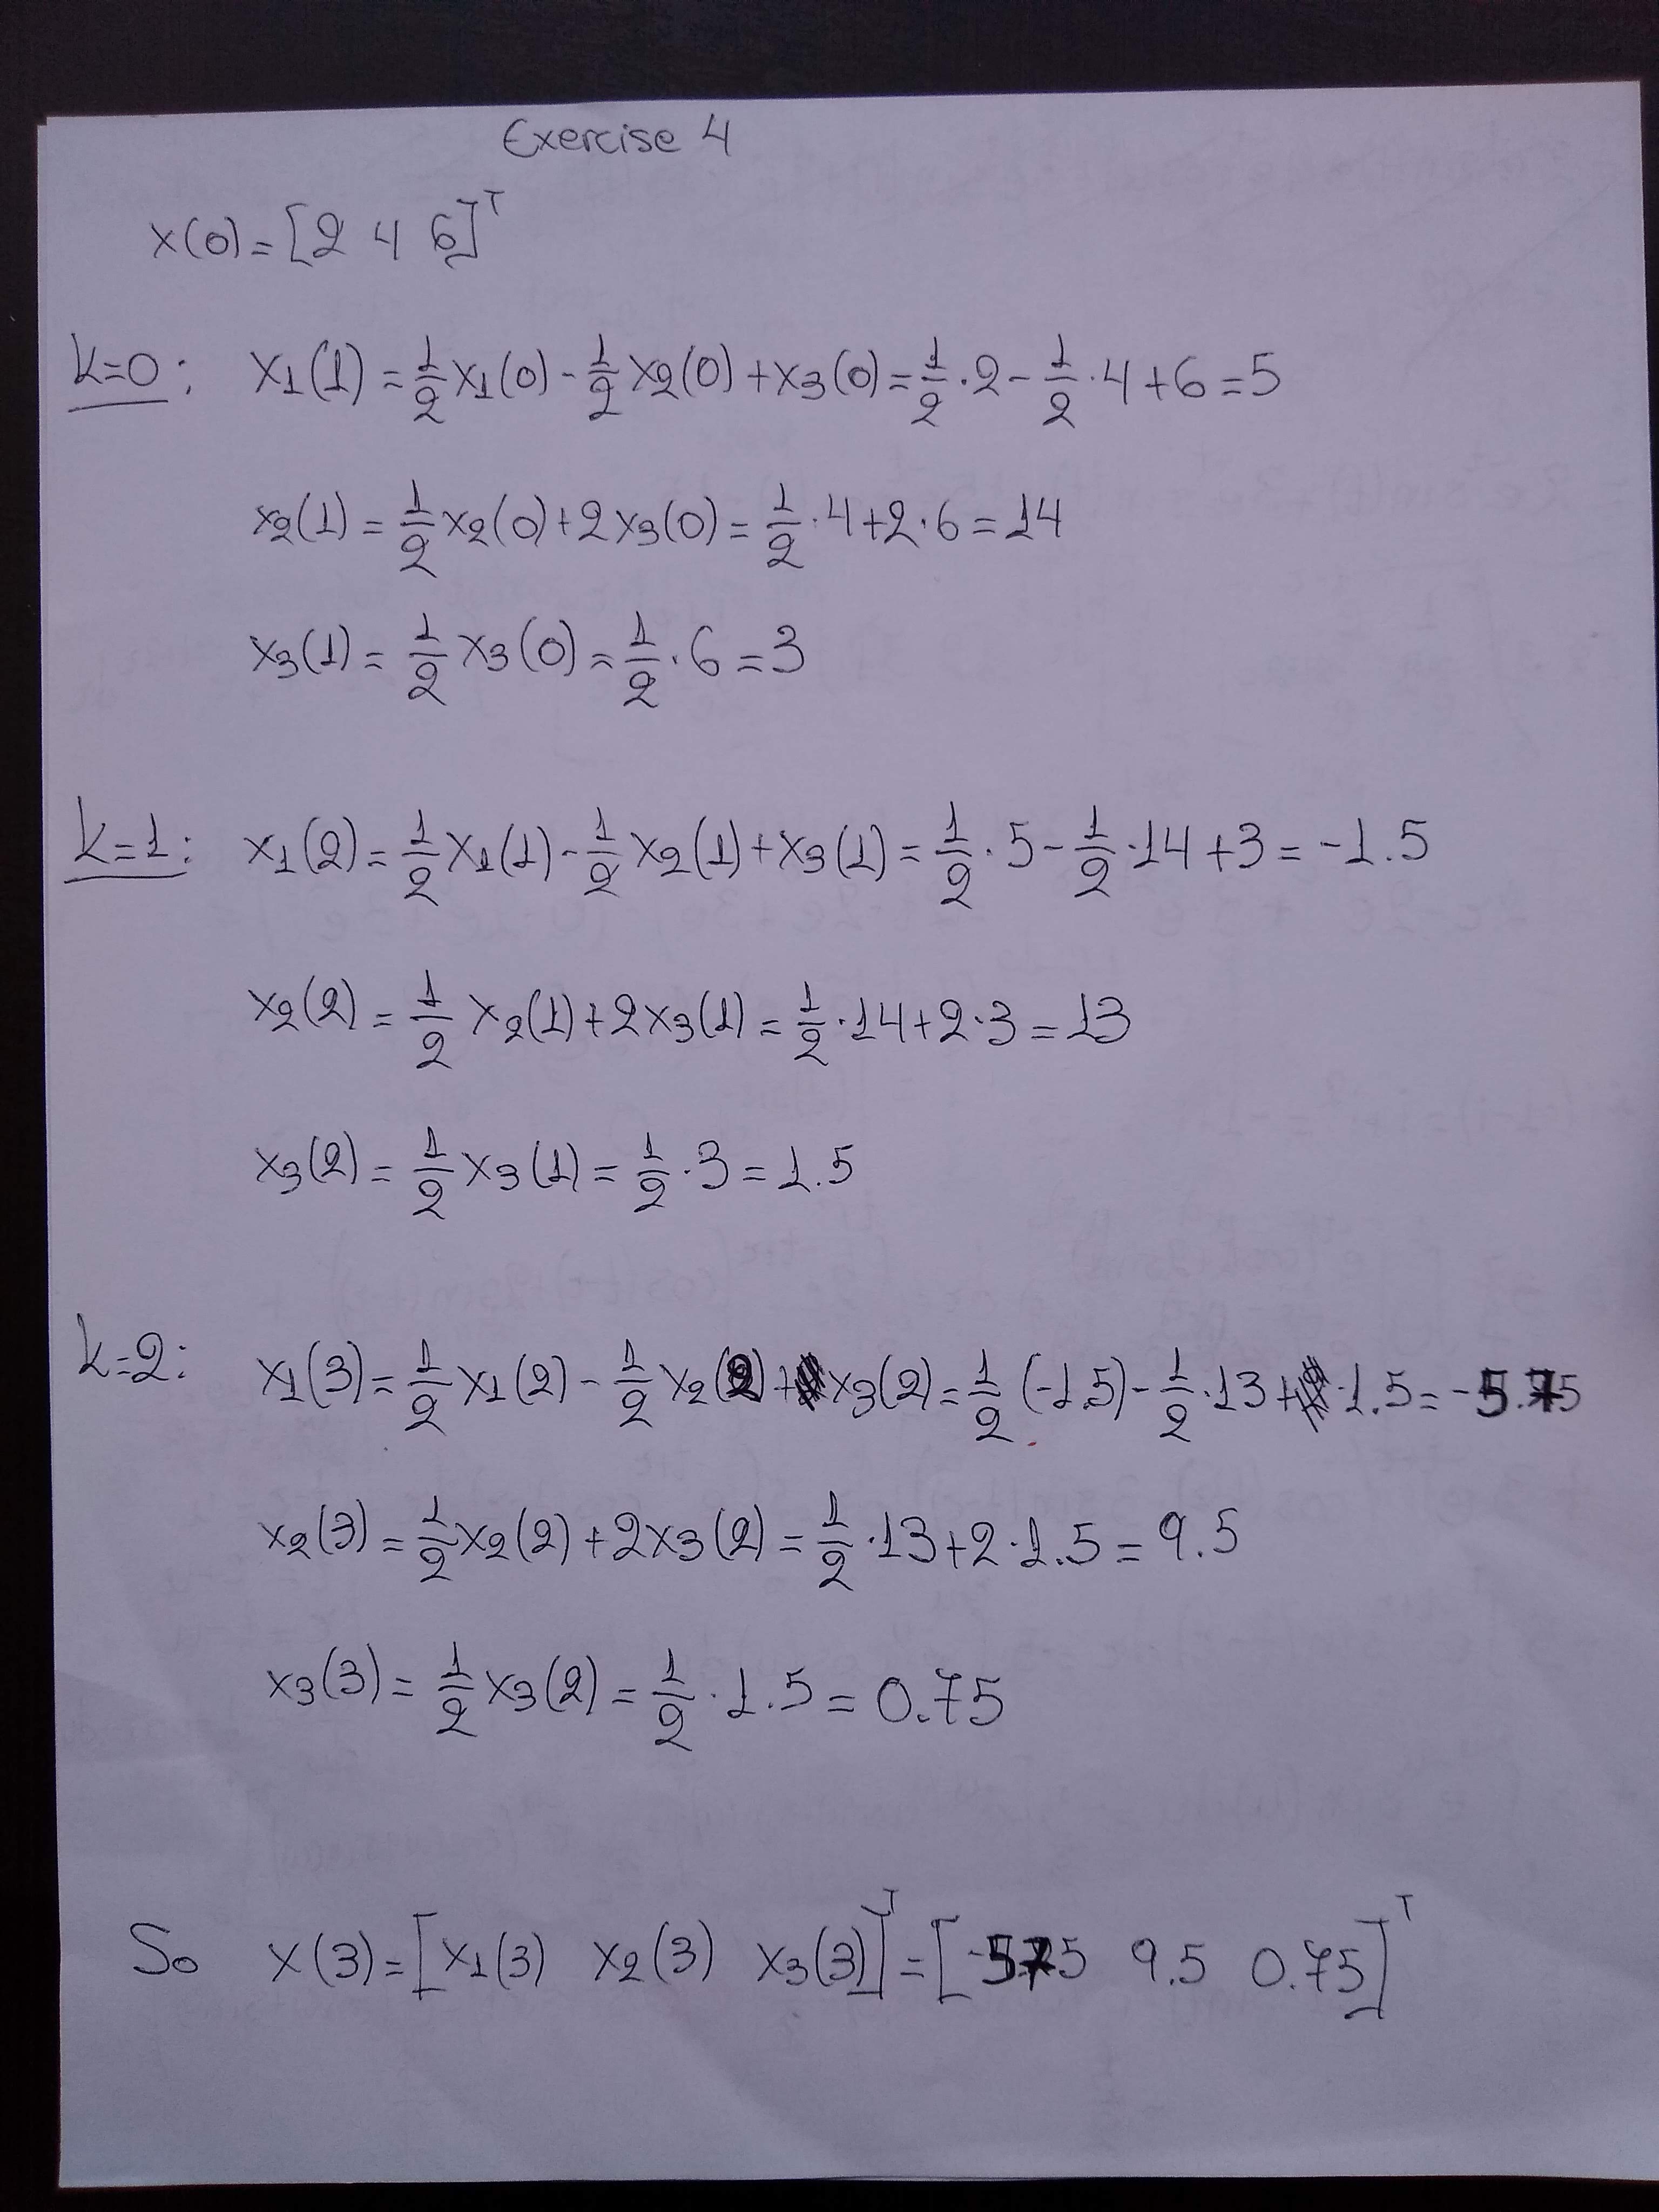 Exercise 4
x(0) = [2 4 6]ᵀ
k=0: x₁(1) = 1/2 x₁(0) - 1/2 x₂(0) + x₃(0) = 1/2 · 2 - 1/2 · 4 + 6 = 5
x₂(1) = 1/2 x₂(0) + 2x₃(0) = 1/2 · 4 + 2 · 6 = 14
x₃(1) = 1/2 x₃(0) = 1/2 · 6 = 3
k=1: x₁(2) = 1/2 x₁(1) - 1/2 x₂(1) + x₃(1) = 1/2 · 5 - 1/2 · 14 + 3 = -1.5
x₂(2) = 1/2 x₂(1) + 2x₃(1) = 1/2 · 14 + 2 · 3 = 13
x₃(2) = 1/2 x₃(1) = 1/2 · 3 = 1.5
k=2: x₁(3) = 1/2 x₁(2) - 1/2 x₂(2) + x₃(2) = 1/2 (-1.5) - 1/2 · 13 + · 1.5 = -5.75
x₂(3) = 1/2 x₂(2) + 2x₃(2) = 1/2 · 13 + 2 · 1.5 = 9.5
x₃(3) = 1/2 x₃(2) = 1/2 · 1.5 = 0.75
So x(3) = [x₁(3) x₂(3) x₃(3)]ᵀ = [-5.75 9.5 0.75]ᵀ